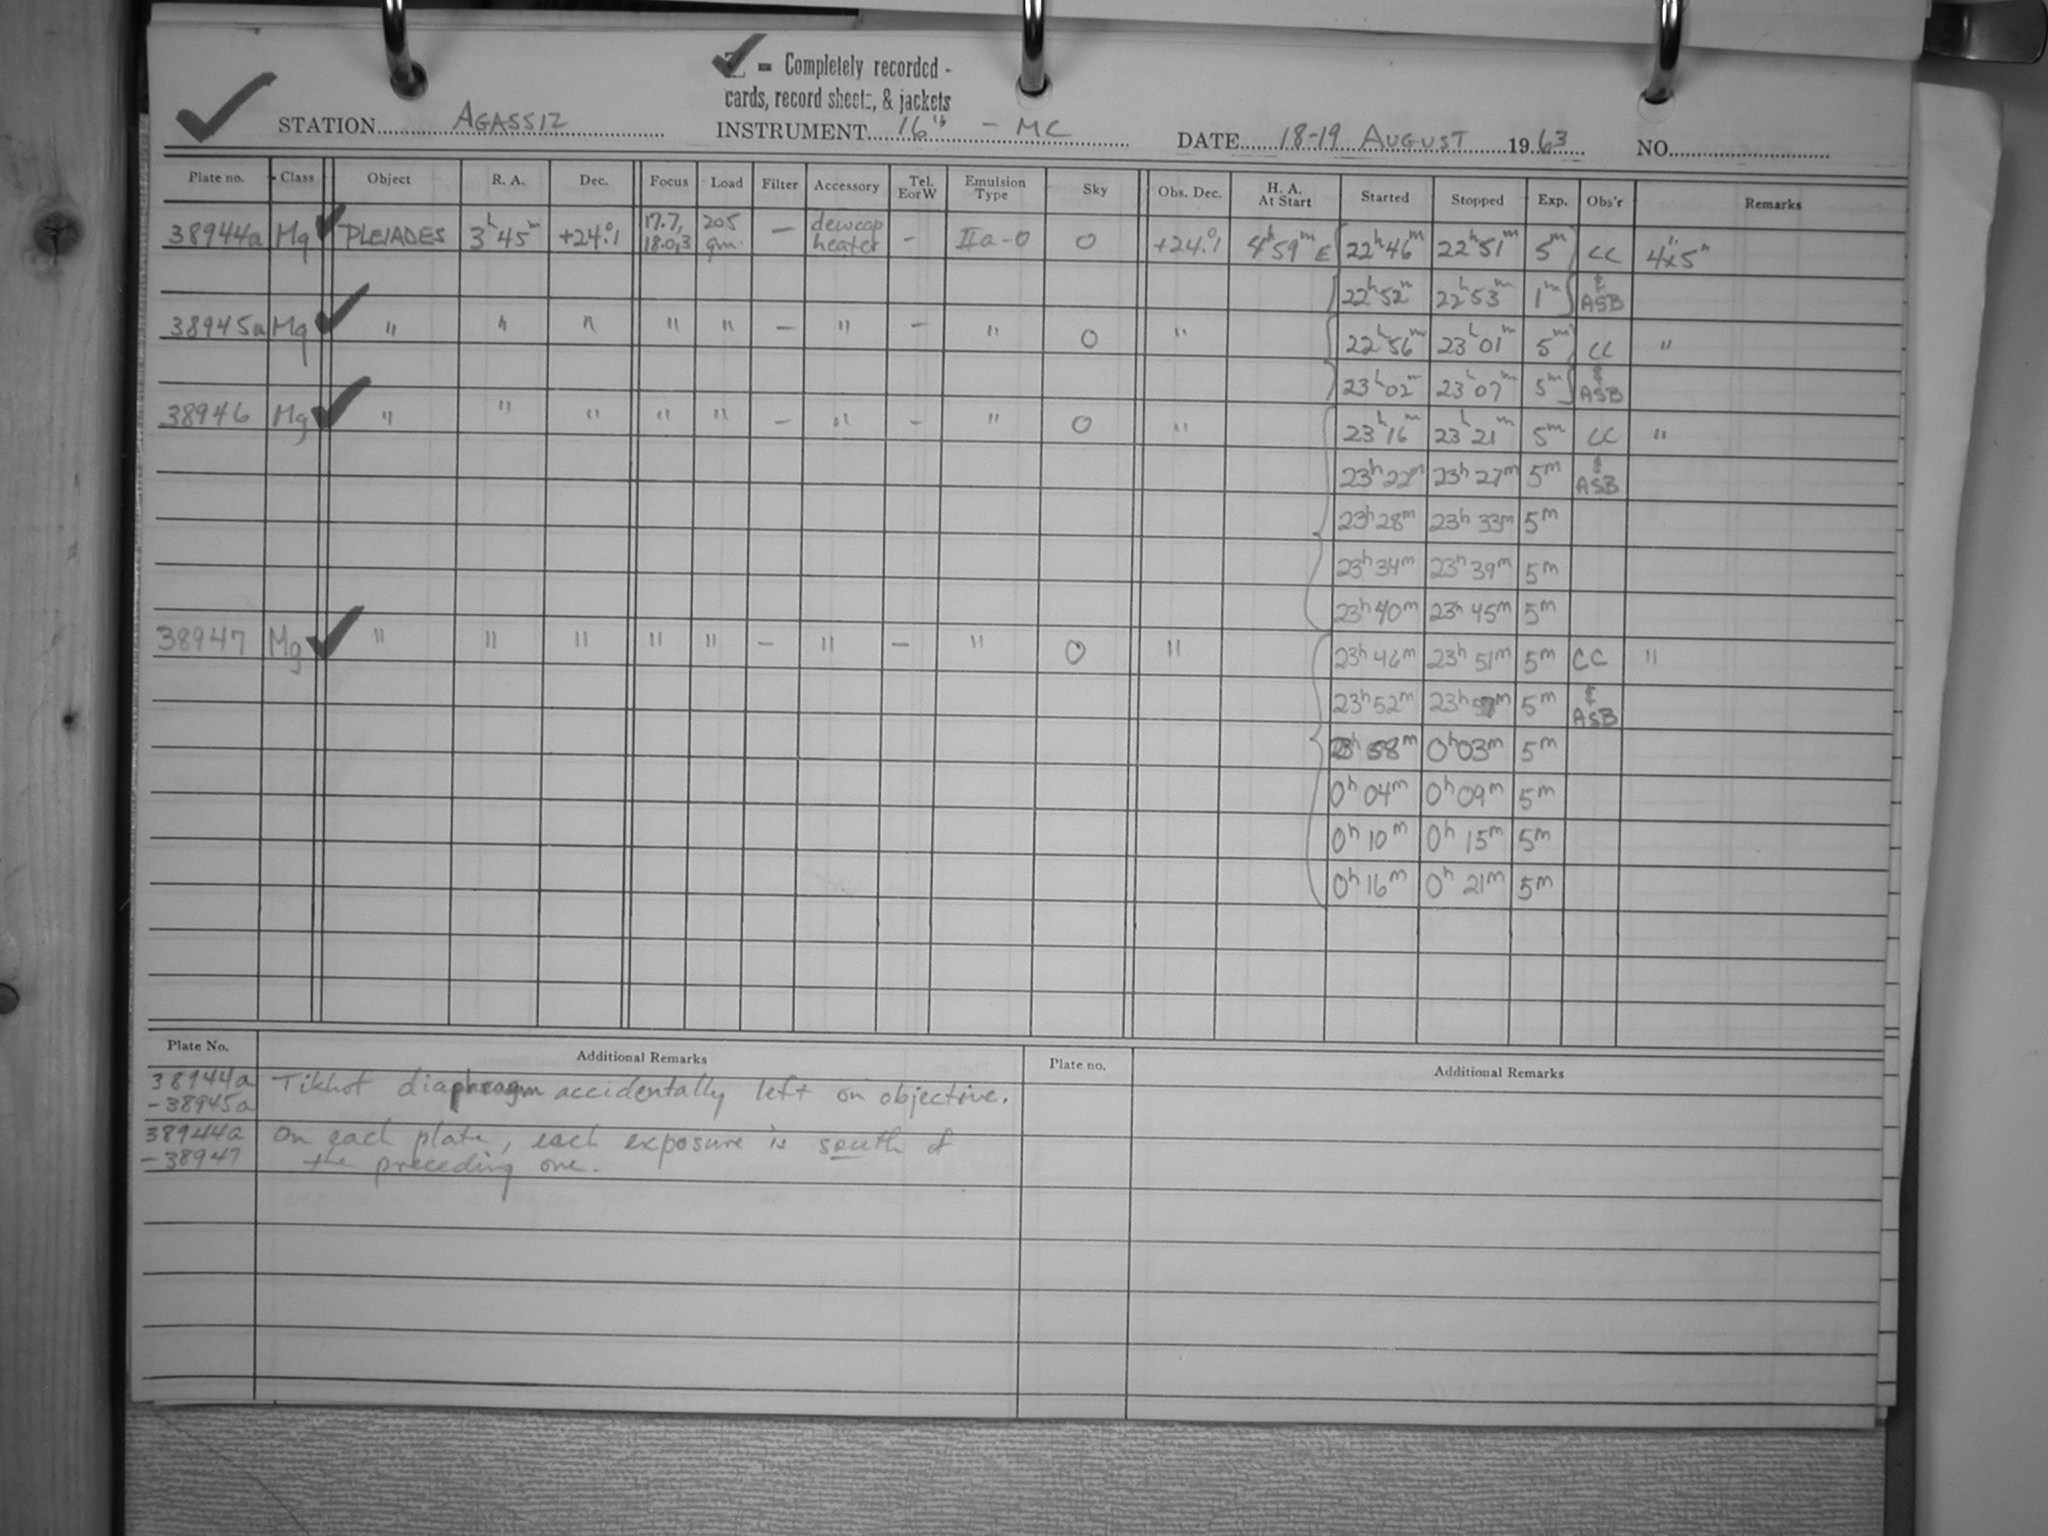 ✓ = Completely recorded -
cards, record sheets, & jackets
STATION AGASSIZ INSTRUMENT 16" - MC DATE 18-19 AUGUST 1963 NO.
Plate no. Class Object R. A. Dec. Focus Load Filter Accessory Tel. E or W Emulsion Type Sky Obs. Dec. H. A. At Start Started Stopped Exp. Obs'r Remarks
38944a Mg ✓ PLEIADES 3h 45m +24.°1 17.7, 18.0,3 205 gm. — dewcap heater - IIa-O O +24.°1 4h 59m E 22h 46m 22h 51m 5m CC 4x5"
22h 52m 22h 53m 1m & ASB
38945a Mg ✓ " " " " " — " - " O " 22h 56m 23h 01m 5m CC "
23h 02m 23h 07m 5m & ASB
38946 Mg ✓ " " " " " — " - " O " 23h 16m 23h 21m 5m CC "
23h 22m 23h 27m 5m & ASB
23h 28m 23h 33m 5m
23h 34m 23h 39m 5m
23h 40m 23h 45m 5m
38947 Mg ✓ " " " " " — " — " O " 23h 46m 23h 51m 5m CC "
23h 52m 23h 57m 5m & ASB
23h 58m 0h 03m 5m
0h 04m 0h 09m 5m
0h 10m 0h 15m 5m
0h 16m 0h 21m 5m
Plate No. Additional Remarks Plate no. Additional Remarks
38944a
-38945a Tikhot diaphragm accidentally left on objective.
38944a On each plate, each exposure is south of
-38947 the preceding one.